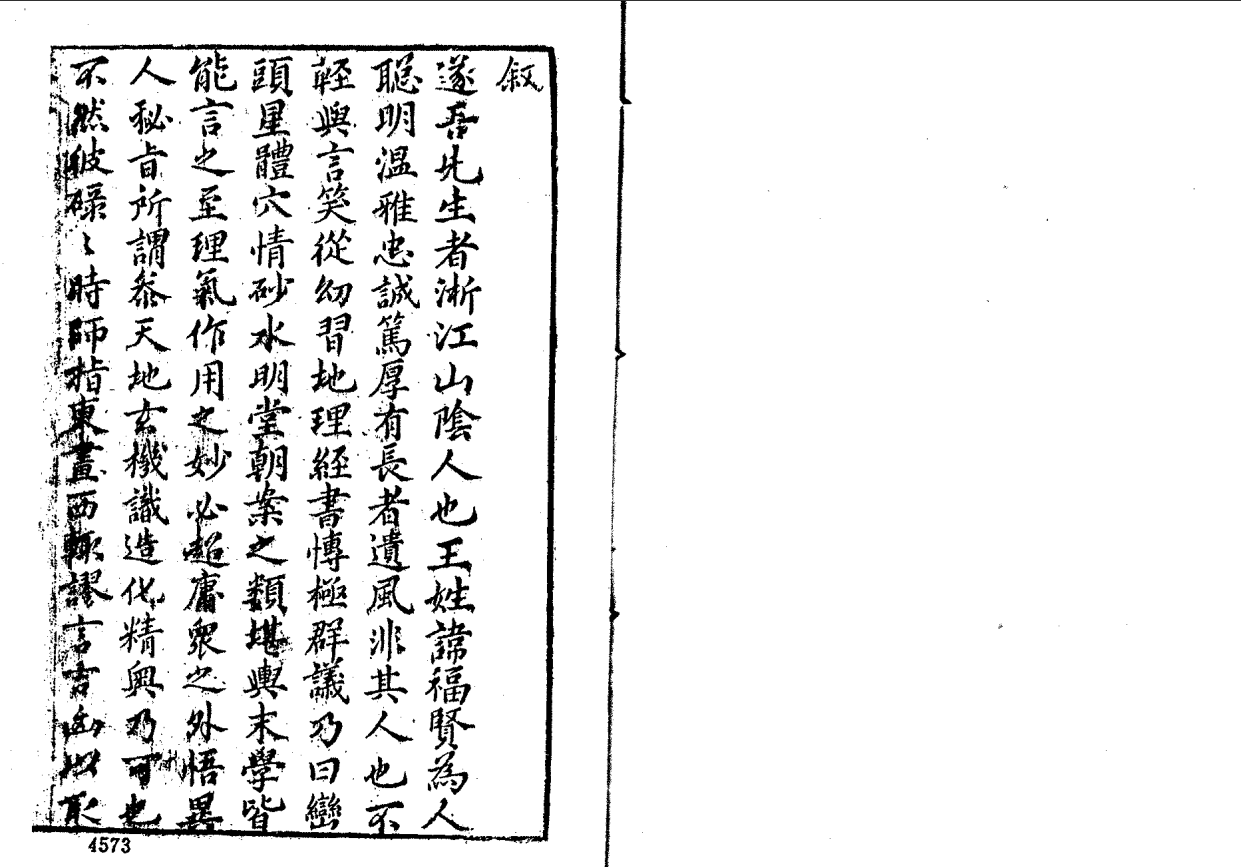 叙
遂吾先生者淅江山陰人也王姓諱福賢為人
聡明溫雅忠誠篤厚有長者遺風非其人也不
輕與言笑從幼習地理經書慱極群議乃曰巒
頭星體穴情砂水明堂朝案之類堪輿末學皆
能言之至理氣作用之妙必超庸衆之外悟異
人秘旨所謂叅天地玄機識造化精奥乃可也
不然彼碌〻時師指東畫西輒謬言吉凶以取
4573